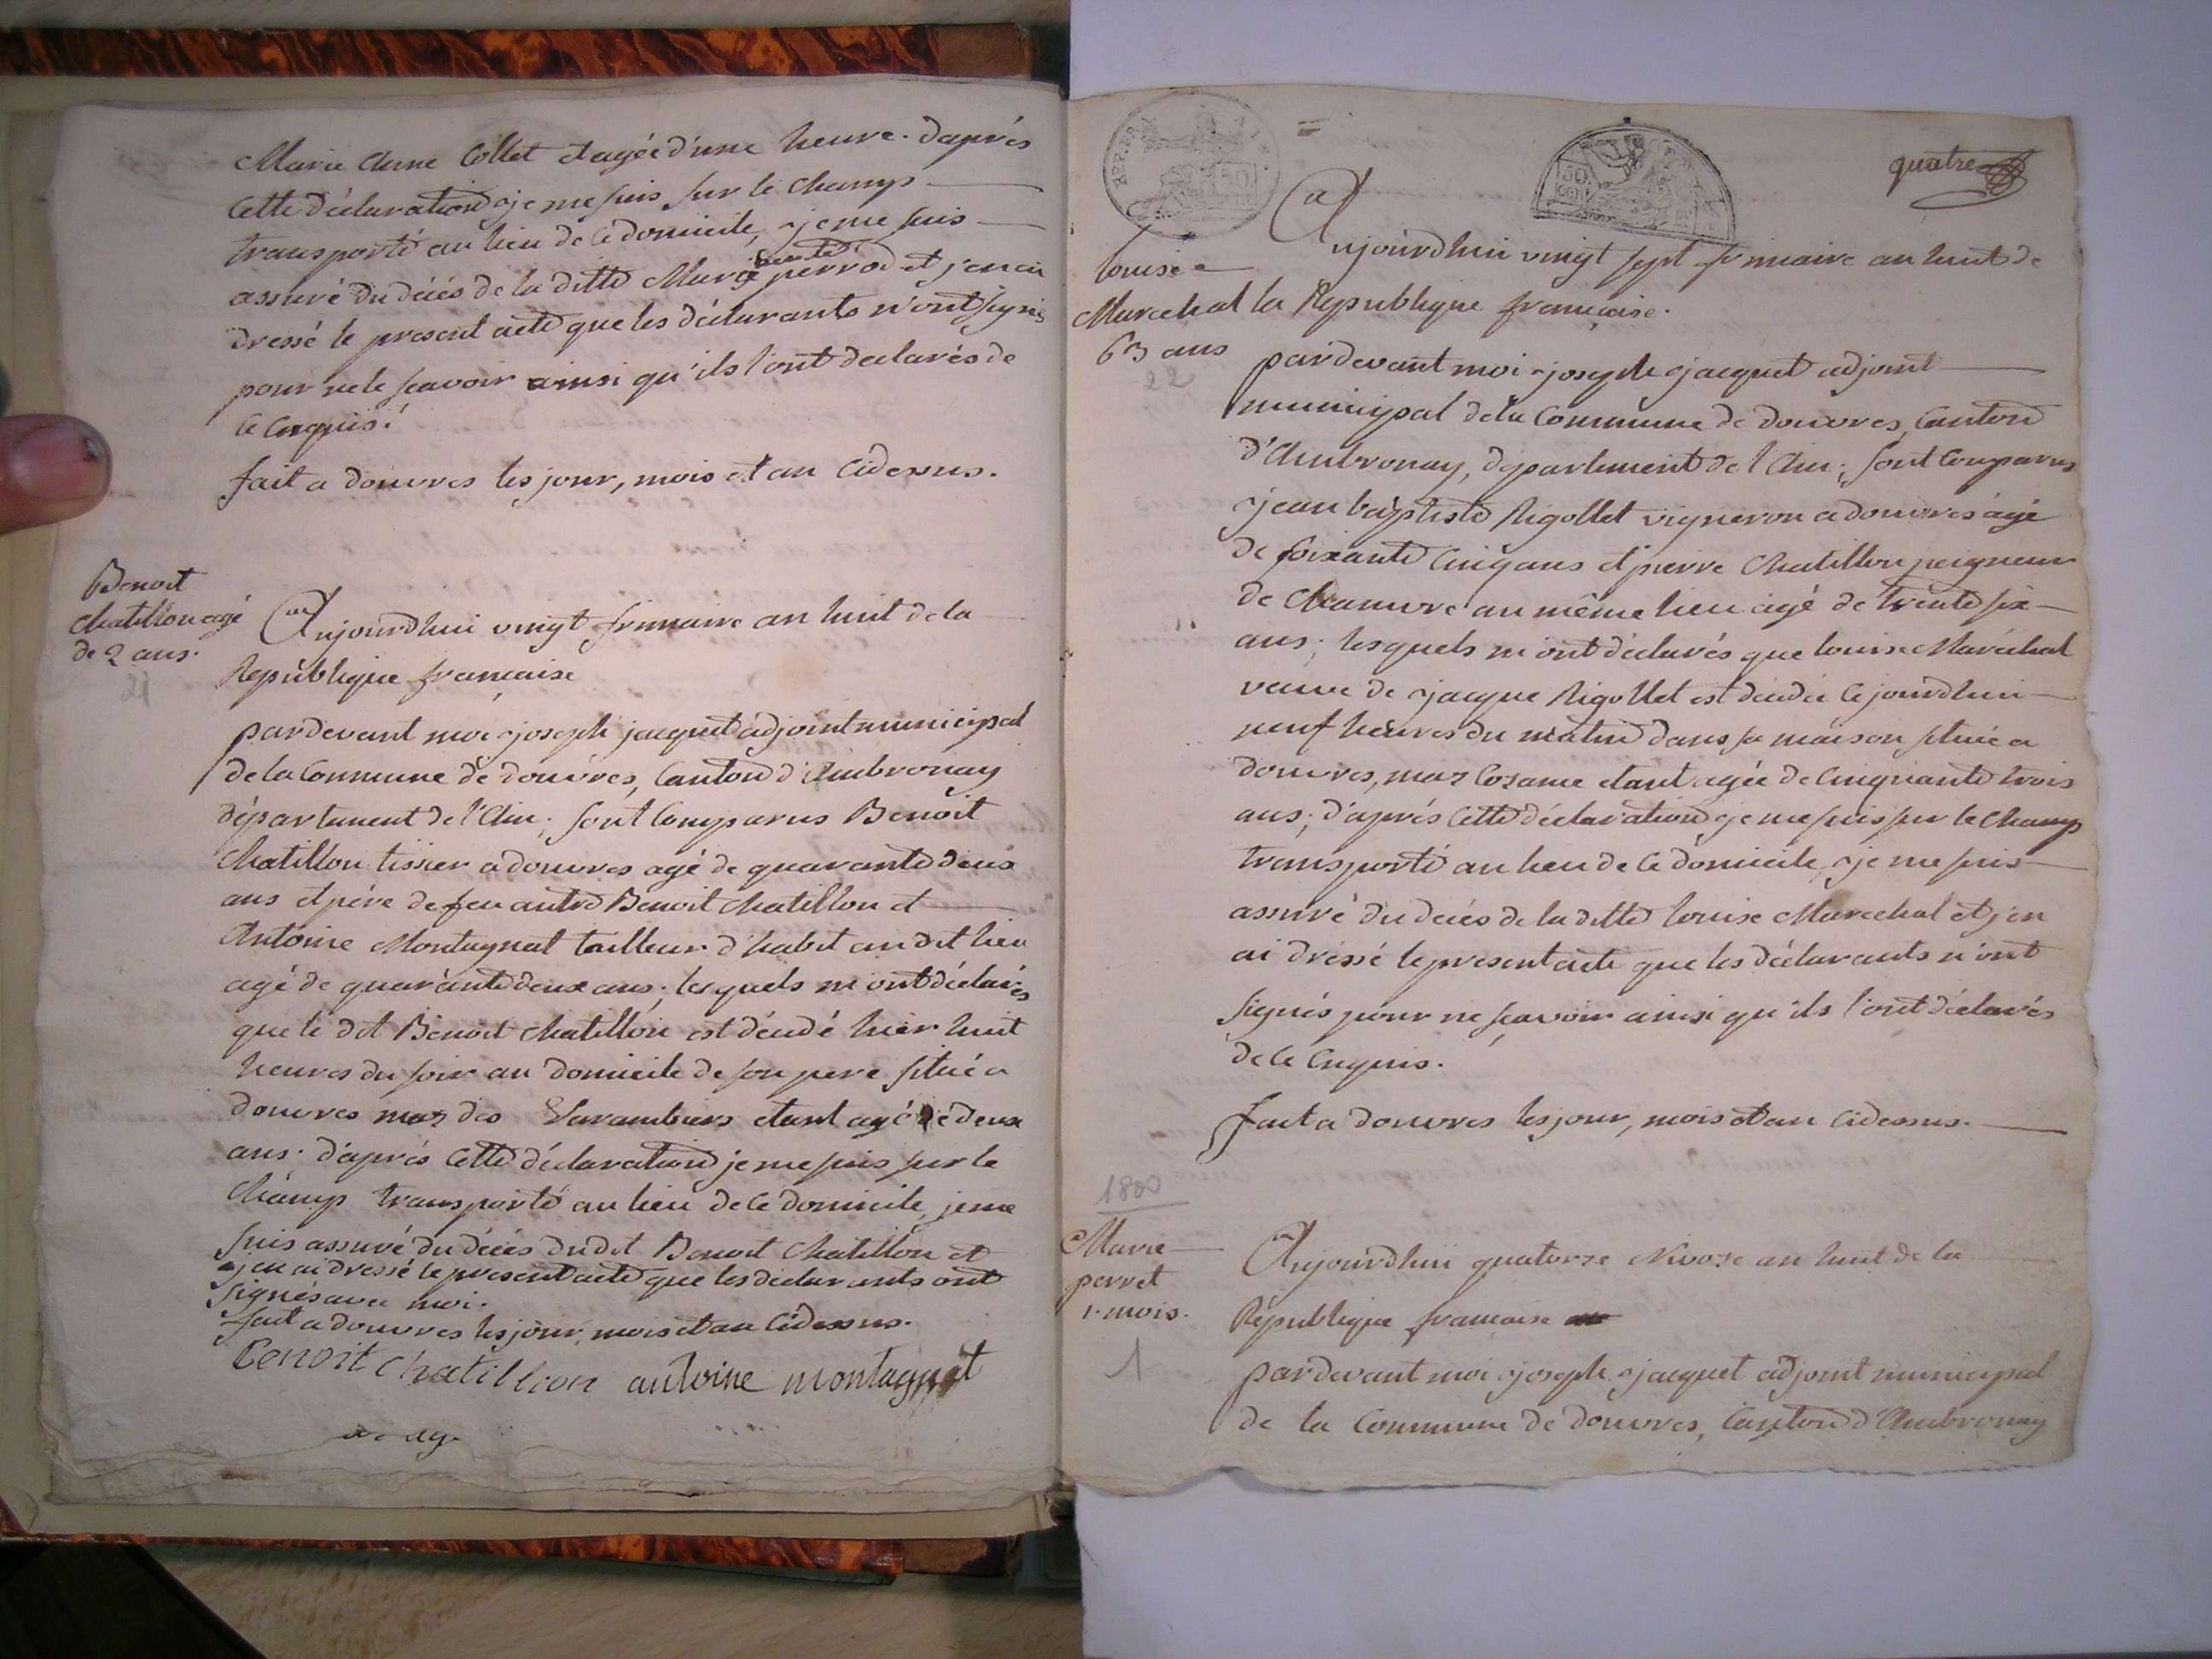 Marie Anne Collet et agée d'une heure. d'après
cette déclaration je me suis sur le champ
transporté au lieu de ce domicile, je me suis
assuré du décès de la ditte Marie benoite perrod et j'en ai
dressé le present acte que les déclarants n'ont signés
pour ne le sçavoir ainsi qu'ils l'ont declarés de
ce enquis.
fait a douvres les jour, mois et an cidessus.
Benoit
chatillon agé
de 2 ans.
21
Aujourdhui vingt frimaire an huit de la
Republique francaise
pardevant moi joseph jacquet adjoint municipal
de la Commune de douvres, Canton d'Ambronay
département de l'Ain; sont Comparus Benoit
Chatillon tissier a douvres agé de quarante deux
ans et père de feu autre Benoit chatillon et
Antoine Montagnat tailleur d'habit au dit lieu
agé de quarante deux ans; lesquels m'ont déclarés
que le dit Benoit chatillon est décédé hier huit
heures du soir au domicile de son pere situé a
douvres mas des Varambiers etant agé de deux
ans. d'après cette déclaration je me suis sur le
champ transporté au lieu de ce domicile, je me
suis assuré du décès dudit Benoit chatillon et
j'en ai dressé le present acte que les declarants ont
signés avec moi.
fait a douvres les jour, mois et an cidessus.
Benoit chatillion antoine montagnat
quatre
REP. FR.
50
CENT
louise
Marechal
63 ans
22
Aujourdhui vingt sept frimaire an huit de
la Republique francaise.
pardevant moi joseph jacquet adjoint
municipal de la Commune de douvres, Canton
d'Ambronay, département de l'Ain; sont Comparus
jean baptiste Rigollet vigneron a douvres agé
de soixante cinq ans et pierre Chatillon peigneur
de chanvre au même lieu agé de trente six
ans; lesquels m'ont déclarés que louise Maréchal
veuve de jacque Rigollet est décédée cejourdhui
neuf heures du matin dans sa maison située a
douvres, mas Cosance etant agée de cinquante trois
ans; d'après cette déclaration je me suis sur le champ
transporté au lieu de ce domicile, je me suis
assuré du décès de la ditte louise Marechal et j'en
ai dressé le present acte que les déclarants n'ont
signés pour ne sçavoir ainsi qu'ils l'ont déclarés
de ce enquis.
fait a douvres les jour, mois et an cidessus.
1800
Marie
perret
1. mois.
1
Aujourdhui quatorze Nivose an huit de la
République francaise
pardevant moi joseph jacquet adjoint municipal
de la Commune de douvres, Canton d'Ambronay